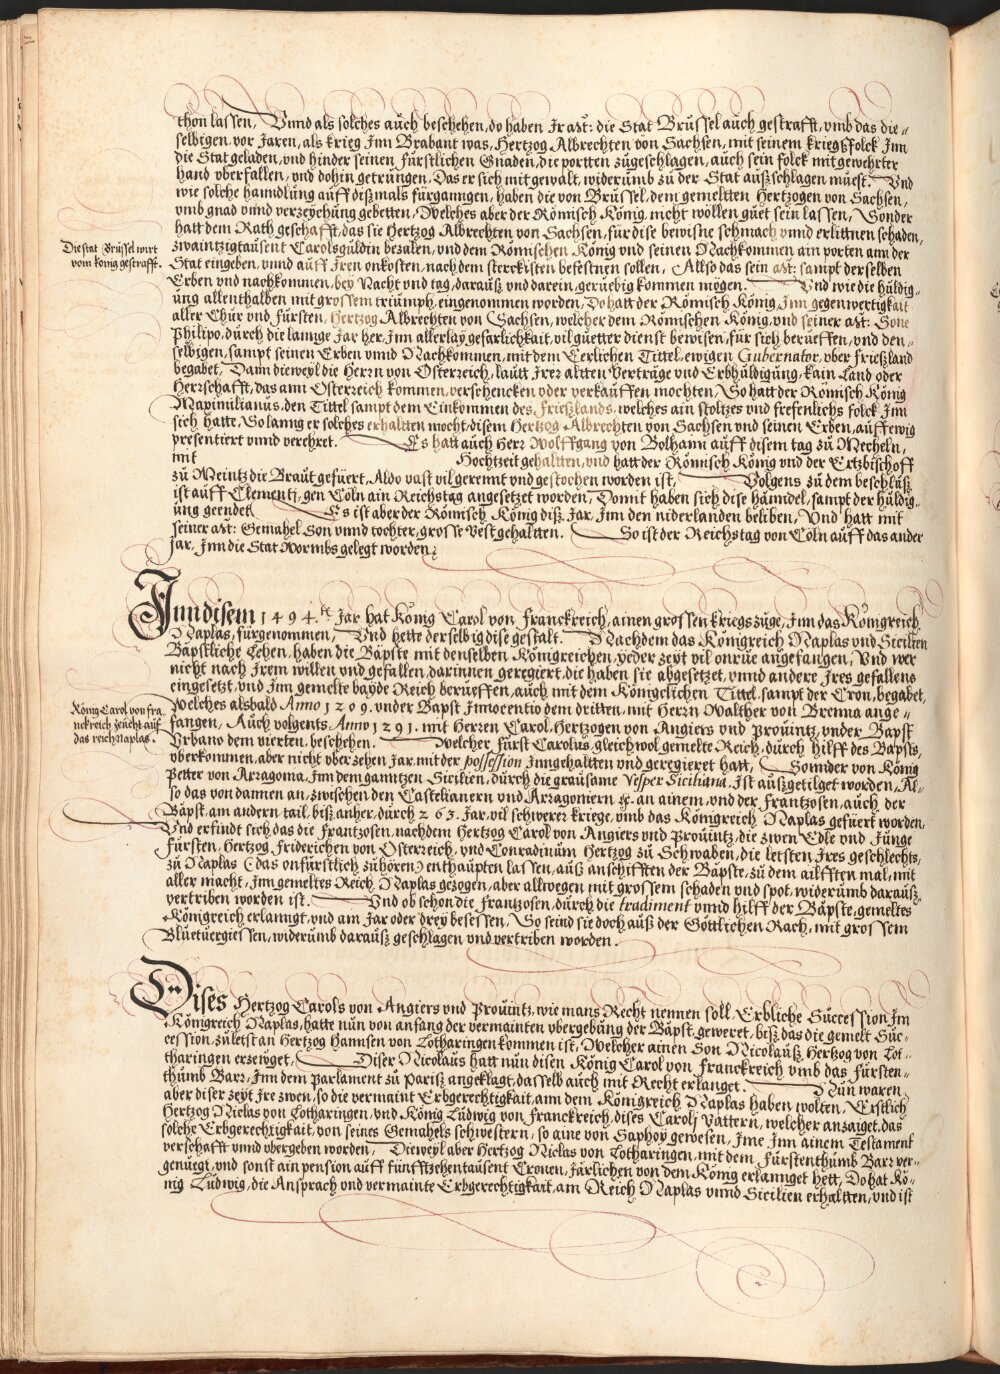 thon lassen, Vnnd als solches auch beschehen, do haben Ir Mt: die Stat Brüssel auch gestrafft, vmb das die-
selbigen, vor Jaren, als krieg Inn Brabant was, Hertzog Albrechten von Sachsen, mit seinem kriegßfolck Inn
die Stat geladen, vnd hinder seinen fürstlichen Gnaden, die portten zugeschlagen, auch sein folck mit gewehrter
hand vberfallen, vnd dohin getrungen, Das er sich mit gewalt, widerumb zu der Stat außschlagen müest. Vnd
wie solche hanndlung auff dißmals fürganngen, haben die von Brüssel, dem gemeltten Hertzogen von Sachsen,
vmb gnad vnnd verzeyhung gebetten, Welches aber der Römisch König, nicht wöllen güet sein lassen, Sonder
hatt dem Rath geschafft, das sie Hertzog Albrechten von Sachsen, für dise bewisne schmach vnnd erlittnen schaden,
zwaintzigtausent Carolsguldin bezalen, vnd dem Römischen König vnd seinen Nachkommen ain porten ann der
Stat eingeben, vnnd auff Iren onkosten, nach dem sterckisten befestnen sollen, Allso das sein Mt: sampt derselben
Erben vnd nachkommen, bey Nacht vnd tag, darauß vnd darein, geruebig kommen mögen. Vnd wie die huldig-
ung allenthalben mit grossem triumph, eingenommen worden, Do hatt der Römisch König, Inn gegenwertigkait
aller Chür vnd fürsten, Hertzog Albrechten von Sachsen, welcher dem Römischen König, vnd seiner Mt: Sone
Philipo, durch die lannge Jar her, Inn allerlay gefärlichkait, vil güetter dienst bewisen, für sich berueffen, vnd den-
selbigen, sampt seinen Erben vnnd Nachkommen, mit dem Eerlichen Tittel, ewigen Gubernator, vber Frießland
begabet, Dann dieweyl die Herrn von Osterreich, lautt Irer altten Verträge vnd Erbhuldigung, kain Land oder
Herrschafft, das ann Osterreich kommen, verschencken oder verkauffen mochten, So hatt der Römisch König
Maximilianus, den Tittel sampt dem Einkommen des Frießlands, welches ain stoltzes vnd frefenlichs folck Inn
sich hatte, So lanng er solches erhaltten mocht, disem Hertzog Albrechten von Sachsen vnd seinen Erben, auff ewig
presentiert vnnd verehret. Es hatt auch Herr Wolffgang von Polhaim auff disem tag zu Mecheln,
mit Hochtzeit gehaltten, vnd hatt der Römisch König vnd der Ertzbischoff
zu Meintz die Braut gefüert, Aldo vast vil gerennt vnd gestochen worden ist, Volgens zu dem beschluß,
ist auff Clementj, gen Cöln ain Reichstag angesetzet worden, Domit haben sich dise händel, sampt der huldig-
ung geendet. Es ist aber der Römisch König diß Jar, Inn den niderlanden beliben, Vnd hatt mit
seiner Mt: Gemahel Son vnnd tochter, grosse Vest gehaltten. So ist der Reichstag von Cöln auff das ander
Jar, Inn die Stat Wormbs gelegt worden.
Die stat Brüssel wirt
vom konig gestrafft.
Inn disem 1494.te Jar hat König Carol von Franckreich, ainen grossen kriegszuge, Inn das Königreich
Naplas, fürgenommen, Vnd hette derselbig dise gestalt. Nachdem das Königreich Naplas vnd Sicilien
Bäpstliche Lehen, haben die Bäpste mit denselben Königreichen, yeder zeyt vil onrue angefangen, Vnd wer
nicht nach Irem willen vnd gefallen, darinnen geregiert, die haben sie abgesetzet, vnnd andere Ires gefallens
eingesetzt, vnd Inn gemelte bayde Reich berueffen, auch mit dem Königclichen Tittel, sampt der Cron, begabet,
Welches alsbald Anno 1209. vnder Bapst Innocentio dem dritten, mit Herrn Walther von Brenna ange-
fangen, Auch volgents Anno 1291. mit Herren Carol, Hertzogen von Angiers vnd Prouintz, vnder Bapst
Vrbano dem vierten, beschehen. Welcher fürst Carolus, gleichwol gemelte Reich, durch hilff des Bapsts,
vberkommen, aber nicht vber zehen Jar, mit der possession Inngehaltten vnd geregieret hatt, Sonnder von König
Petter von Arragonia, Inn dem ganntzen Sicilien, durch die grausame Vesper Siciliana, Ist außgetilget worden, Al-
so das von dannen an, zwischen den Castelianern vnd Arragoniern &c. an ainem, vnd der Frantzosen, auch der
Bäpst, am andern tail, biß anher, durch 263. Jar, vil schwerer kriege, vmb das Königreich Naplas gefüert worden,
Vnd erfindt sich das die Frantzosen, nachdem Hertzog Carol von Angiers vnd Prouintz, die zwen Edle vnd Junge
Fürsten, Hertzog Friderichen von Osterreich, vnd Conradinum Hertzog zu Schwaben, die letsten Ires geschlechts,
zu Naplas (das onfürstlich zuhören) enthaupten lassen, auß anschifften der Bäpste, zu dem ailfften mal, mit
aller macht, Inn gemeltes Reich Naplas gezogen, aber allwegen mit grossem schaden vnd spot, widerumb darauß
vertriben worden ist. Vnd ob schon die Frantzosen, durch die tradiment vnnd hilff der Bäpste, gemeltes
Königreich erlanngt, vnd am Jar oder drey besessen, So seind sie doch auß der Göttlichen Rach, mit grossem
Bluetuergiessen, widerumb darauß geschlagen vnd vertriben worden.
König Carol von fra
nckreich zeucht auf
das reich Naplas.
Dises Hertzog Carols von Angiers vnd Prouintz, wie mans Recht nennen soll, Erbliche Succession Im
Königreich Naplas, hatte nun von anfang der vermainten vbergebung der Bäpst, geweret, biß das die gemelt Suc-
cession, zuletst an Hertzog Hannsen von Lotharingen kommen ist, Welcher ainen Son Nicolauß, Hertzog von Lot-
tharingen erzewget, Diser Nicolaus hatt nun disen König Carol von Franckreich vmb das Fürsten-
thumb Barr, Inn dem Parlament zu Pariß angeklagt, dasselb auch mit Recht erlanget. Nun waren
aber diser zeyt Ire zwen, so die vermaint Erbgerechtigkait, ann dem Königreich Naplas haben wolten, Erstlich
Hertzog Niclas von Lotharingen, vnd König Ludwig von Franckreich, dises Carolj Vattern, welcher anzaiget, das
solche Erbgerechtigkait, von seines Gemahels schwestern, so aine von Saphoy gewesen, Ime Inn ainem Testament
verschafft vnnd vbergeben worden, Dieweyl aber Hertzog Niclas von Lotharingen, mit dem Fürstenthumb Barr ver-
genuegt, vnd sonst ain pension auff fünfftzehentausent Cronen, Järlichen von dem König erlannget hett, Do hat Kö-
nig Ludwig, die Ansprach vnd vermainte Erbgerechtigkait, am Reich Naplas vnnd Sicilien erhaltten, vnd ist